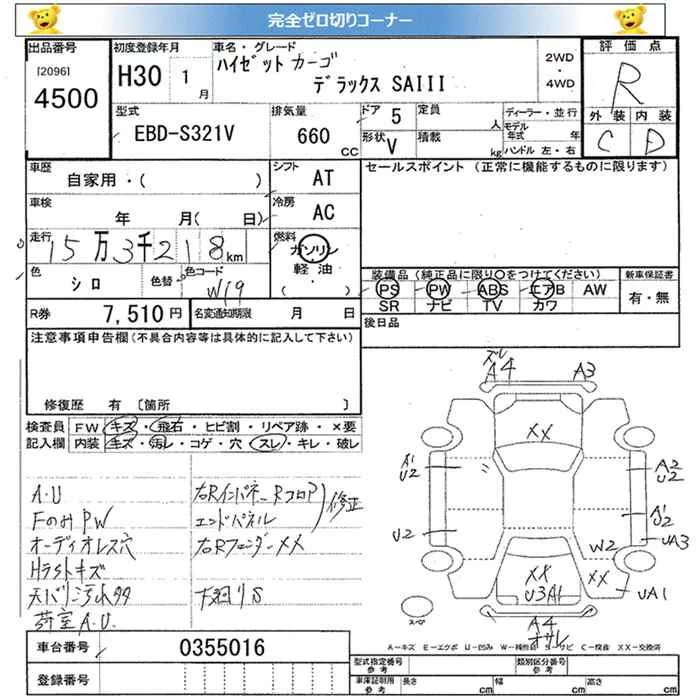 完全ゼロ切りコーナー
出品番号 初度登録年月 車名・グレード 評価点
[2096] 4500
H30 1月
ハイゼット カーゴ
デラックス SAIII
2WD・4WD
R
外装 内装
C D
型式 EBD-S321V
排気量 660 CC
ドア 5 定員 人
形状 V 積載 kg
ディーラー・並行
モデル年式 年式
ハンドル 左・右
車歴 自家用・( )
シフト AT
セールスポイント (正常に機能するものに限ります)
車検 年 月( 日)
冷房 AC
走行 15万3千218km
燃料 ガソリン 軽油・( )
色 シロ 色替 色コード W19
装備品 (純正品に限り○をつけてください) 新車保証書
PS PW ABS エアB AW 有・無
SR ナビ TV カワ
R券 7,510円 名変通知期限 月 日
後日品
注意事項申告欄 (不具合内容等は具体的に記入して下さい)
修復歴 有 〔箇所 〕
検査員記入欄
FW キズ・飛石・ヒビ割・リペア跡・×要
内装 キズ・汚レ・コゲ・穴・スレ・キレ・破レ
A.U
FのみPW
オーディオレス穴
Hラストキズ
天バリ汚れ
荷室A.U.
右Rインパネ Rフロア
エンドパネル
修正
右Rフェンダー××
下廻りS
ズレ
A4 A3
XX
A1 U2
A2 U2
U2
A2 U2
UA3
W2
XX
XX
U3A1
UA1
A4
スペア
A-キズ E-エクボ U-凹み W-補修跡 S-サビ C-腐食 XX-交換済
車台番号 0355016
登録番号
型式指定番号 参考 類別区分番号 参考
車庫証明用 参考 長さ cm 幅 cm 高さ cm